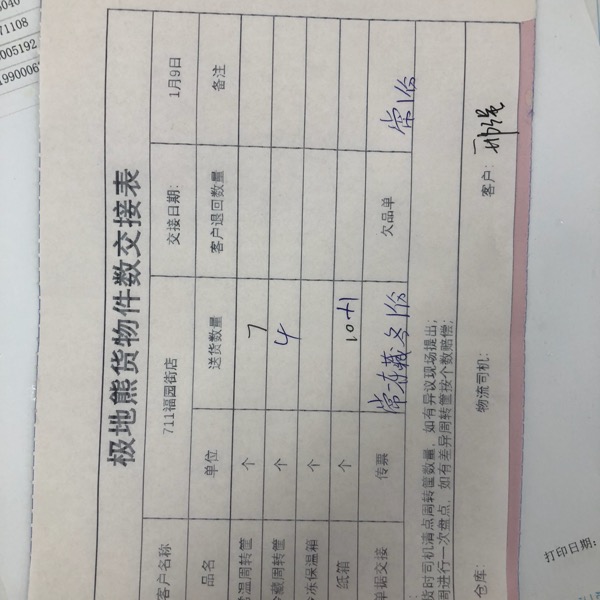 极地熊货物件数交接表
客户名称 711福园街店 交接日期: 1月9日
品名 单位 送货数量 客户退回数量 备注
常温周转筐 个 7
冷藏周转筐 个 4
冷冻保温箱 个
纸箱 个 10+1
单据交接 传票 欠品单
货时司机清点周转筐数量,如有异议现场提出;
周进行一次盘点,如有差异周转筐按个数赔偿;
仓库: 物流司机: 客户:
打印日期:
0040
71108
005192